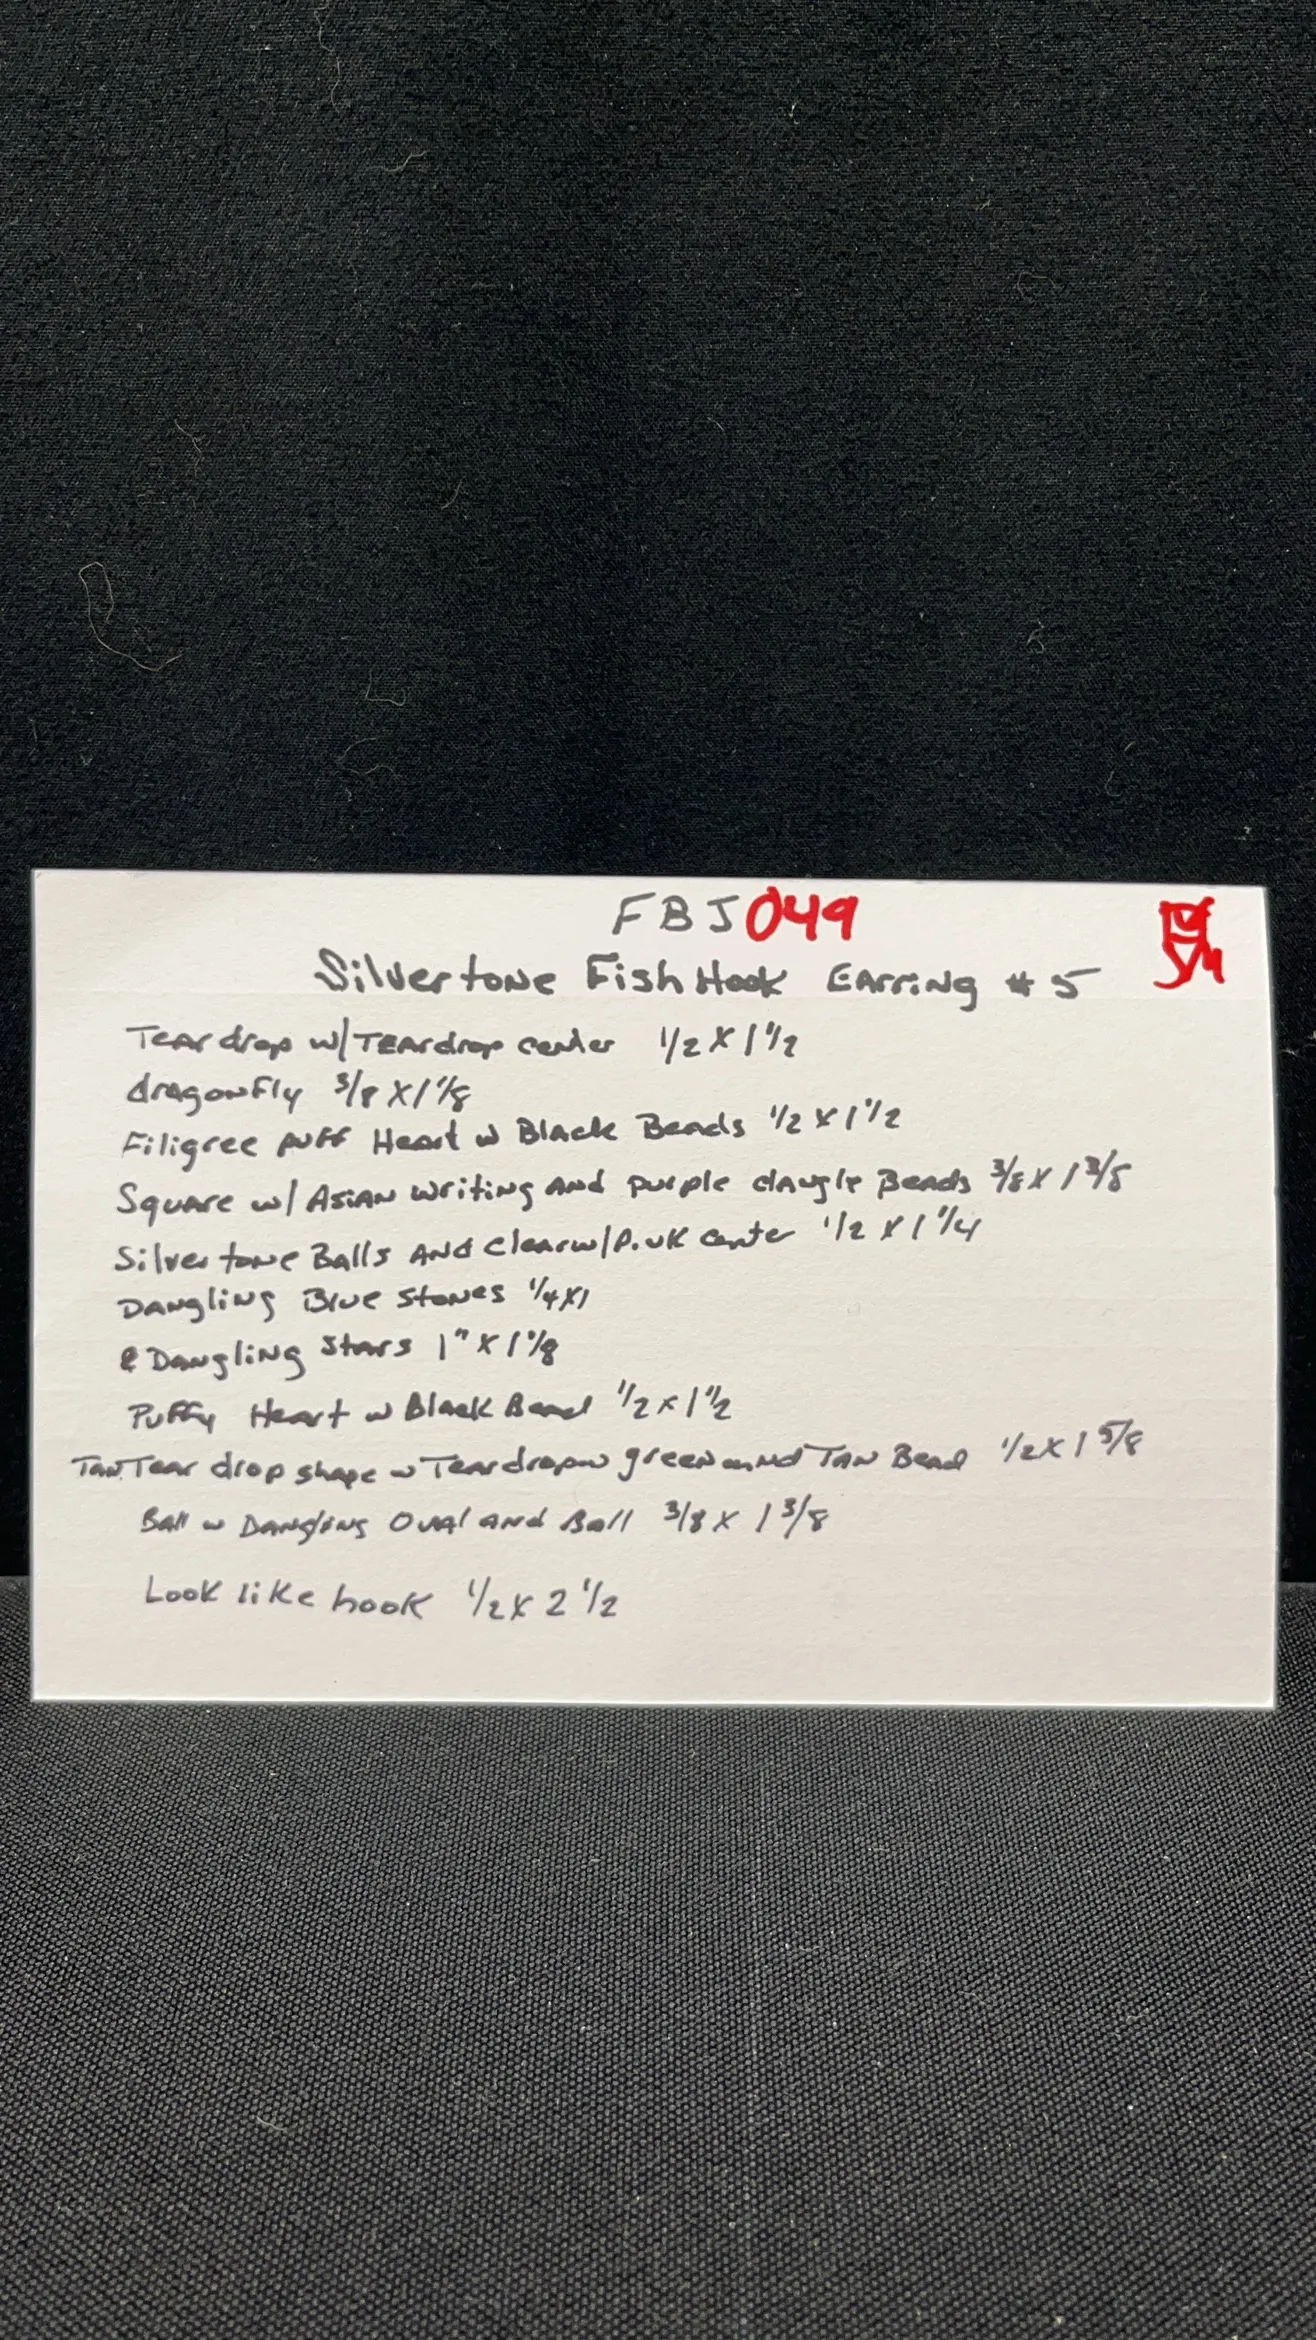 FBJ049
Silvertone Fish Hook Earring # 5
Teardrop w/Teardrop center 1/2 X 1 1/2
dragonfly 3/8 X 1 1/8
Filigree puff Heart w Black Beads 1/2 X 1 1/2
Square w/ Asian writing And purple dangle Beads 3/8 X 1 3/8
Silvertone Balls And Clear w/Pink center 1/2 X 1 1/4
Dangling Blue Stones 1/4 X 1
Dangling Stars 1" X 1 1/8
Puffy Heart w Black Bead 1/2 X 1 1/2
Tan Tear drop shape w Teardrop w green and Tan Bead 1/2 X 1 5/8
Ball w Dangling Oval and Ball 3/8 X 1 3/8
Look like hook 1/2 X 2 1/2